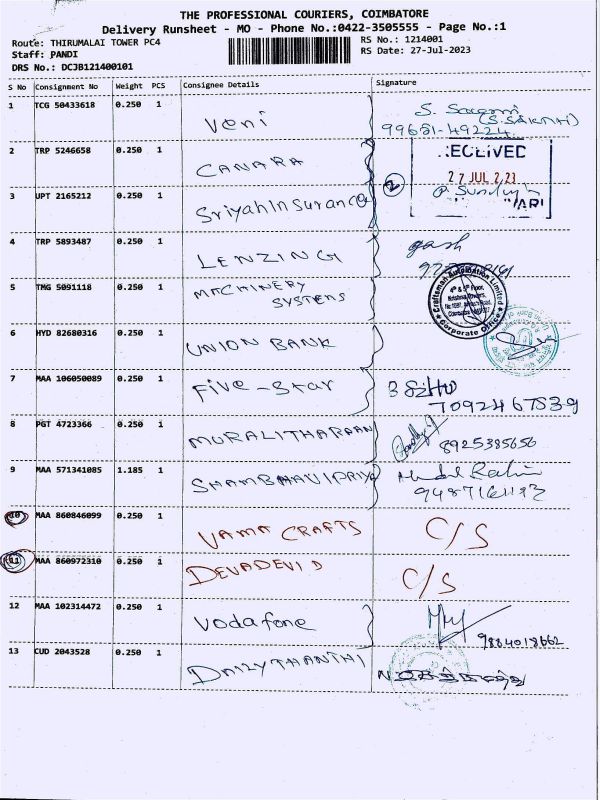 THE PROFESSIONAL COURIERS, COIMBATORE
Delivery Runsheet - MO - Phone No.:0422-3505555 - Page No.:1
Route: THIRUMALAI TOWER PC4
RS No.: 1214001
Staff: PANDI
RS Date: 27-Jul-2023
DRS No.: DCJB121400101
S No Consignment No Weight PCS Consignee Details Signature
1 TCG 50433618 0.250 1 Veni
(S.SAKTHI)
99651-49224
2 TRP 5246658 0.250 1 CANARA
RECEIVED
27 JUL 2023
2
3 UPT 2165212 0.250 1 Sriyah Insurance
4 TRP 5893487 0.250 1 LENZING
5 TMG 5091118 0.250 1 MACHINERY
SYSTEMS
Craftsman Automation Limited
4th & 5th Floor,
Corporate Office
6 HYD 82680316 0.250 1 UNION BANK
7 MAA 106050089 0.250 1 Five-Star
7092467539
8 PGT 4723366 0.250 1 MURALITHARAN
8925385656
9 MAA 571341085 1.185 1 SHAMBHAVIPRIYA
10 MAA 860846099 0.250 1 VAMA CRAFTS C/S
11 MAA 860972310 0.250 1 DEVADEVI D C/S
12 MAA 102314472 0.250 1 Vodafone
9884018662
13 CUD 2043528 0.250 1 DAILYTHANTHI